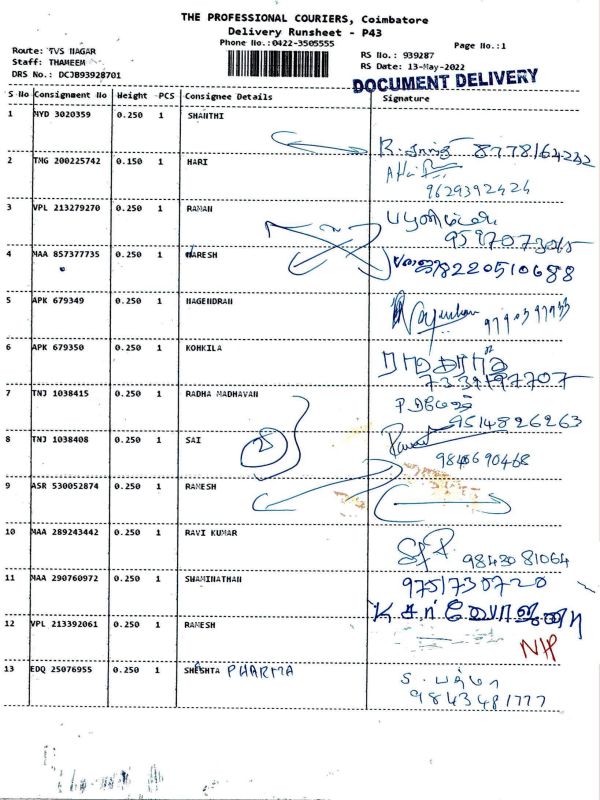 THE PROFESSIONAL COURIERS, Coimbatore
Delivery Runsheet - P43
Phone No.:0422-3505555
Page No.:1
Route: TVS NAGAR
Staff: THAMEEM
DRS No.: DCJB93928701
RS No.: 939287
RS Date: 13-May-2022
DOCUMENT DELIVERY
S No Consignment No Weight PCS Consignee Details Signature
1 NYD 3020359 0.250 1 SHANTHI
8778164242
2 TMG 200225742 0.150 1 HARI
9629392424
3 VPL 213279270 0.250 1 RAMAN
4 MAA 857377735 0.250 1 NARESH
8220510688
5 APK 679349 0.250 1 NAGENDRAN
6 APK 679350 0.250 1 KOHKILA
7 TNJ 1038415 0.250 1 RADHA MADHAVAN
9514826263
8 TNJ 1038408 0.250 1 SAI
9 ASR 530052874 0.250 1 RAMESH
10 MAA 289243442 0.250 1 RAVI KUMAR
9843081064
11 MAA 290760972 0.250 1 SWAMINATHAN
9751730720
12 VPL 213392061 0.250 1 RAMESH
NH
13 EDQ 25076955 0.250 1 SHRSHTA PHARMA
9843481777